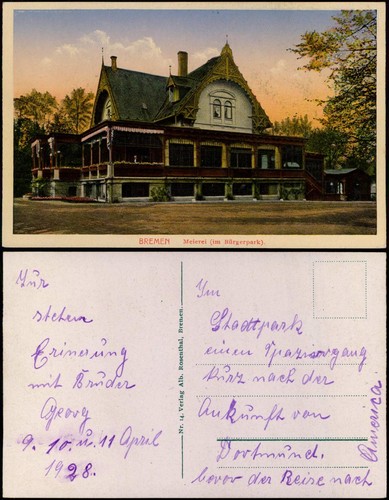 BREMEN Meierei (im Bürgerpark).
Zur
stehem
Erinerung
mit Bruder
Georg
9. 10. u. 11 April
1928.
Nr. 14. Verlag Alb. Rosenthal, Bremen.
Im
Stadtpark
einen Spaziergang
kurz nach der
Ankunft von
Dortmund.
bevor der Reise nach
America.